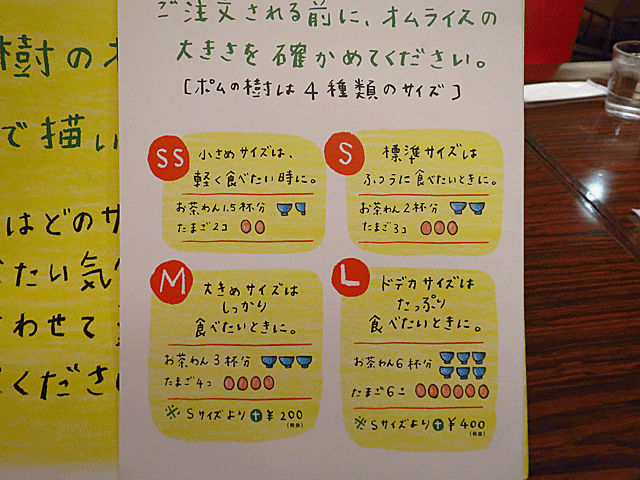 ご注文される前に、オムライスの
大きさを確かめてください。
[ポムの樹は4種類のサイズ]
SS
小さめサイズは、
軽く食べたい時に。
お茶わん1.5杯分
たまご2コ
S
標準サイズは
ふつうに食べたいときに。
お茶わん2杯分
たまご3コ
M
大きめサイズは
しっかり
食べたいときに。
お茶わん3杯分
たまご4コ
※Sサイズより+¥200
(税抜)
L
ドデカサイズは
たっぷり
食べたいときに。
お茶わん6杯分
たまご6コ
※Sサイズより+¥400
(税抜)
樹のオ
で描い
はどのサ
たい気
わせて
ください